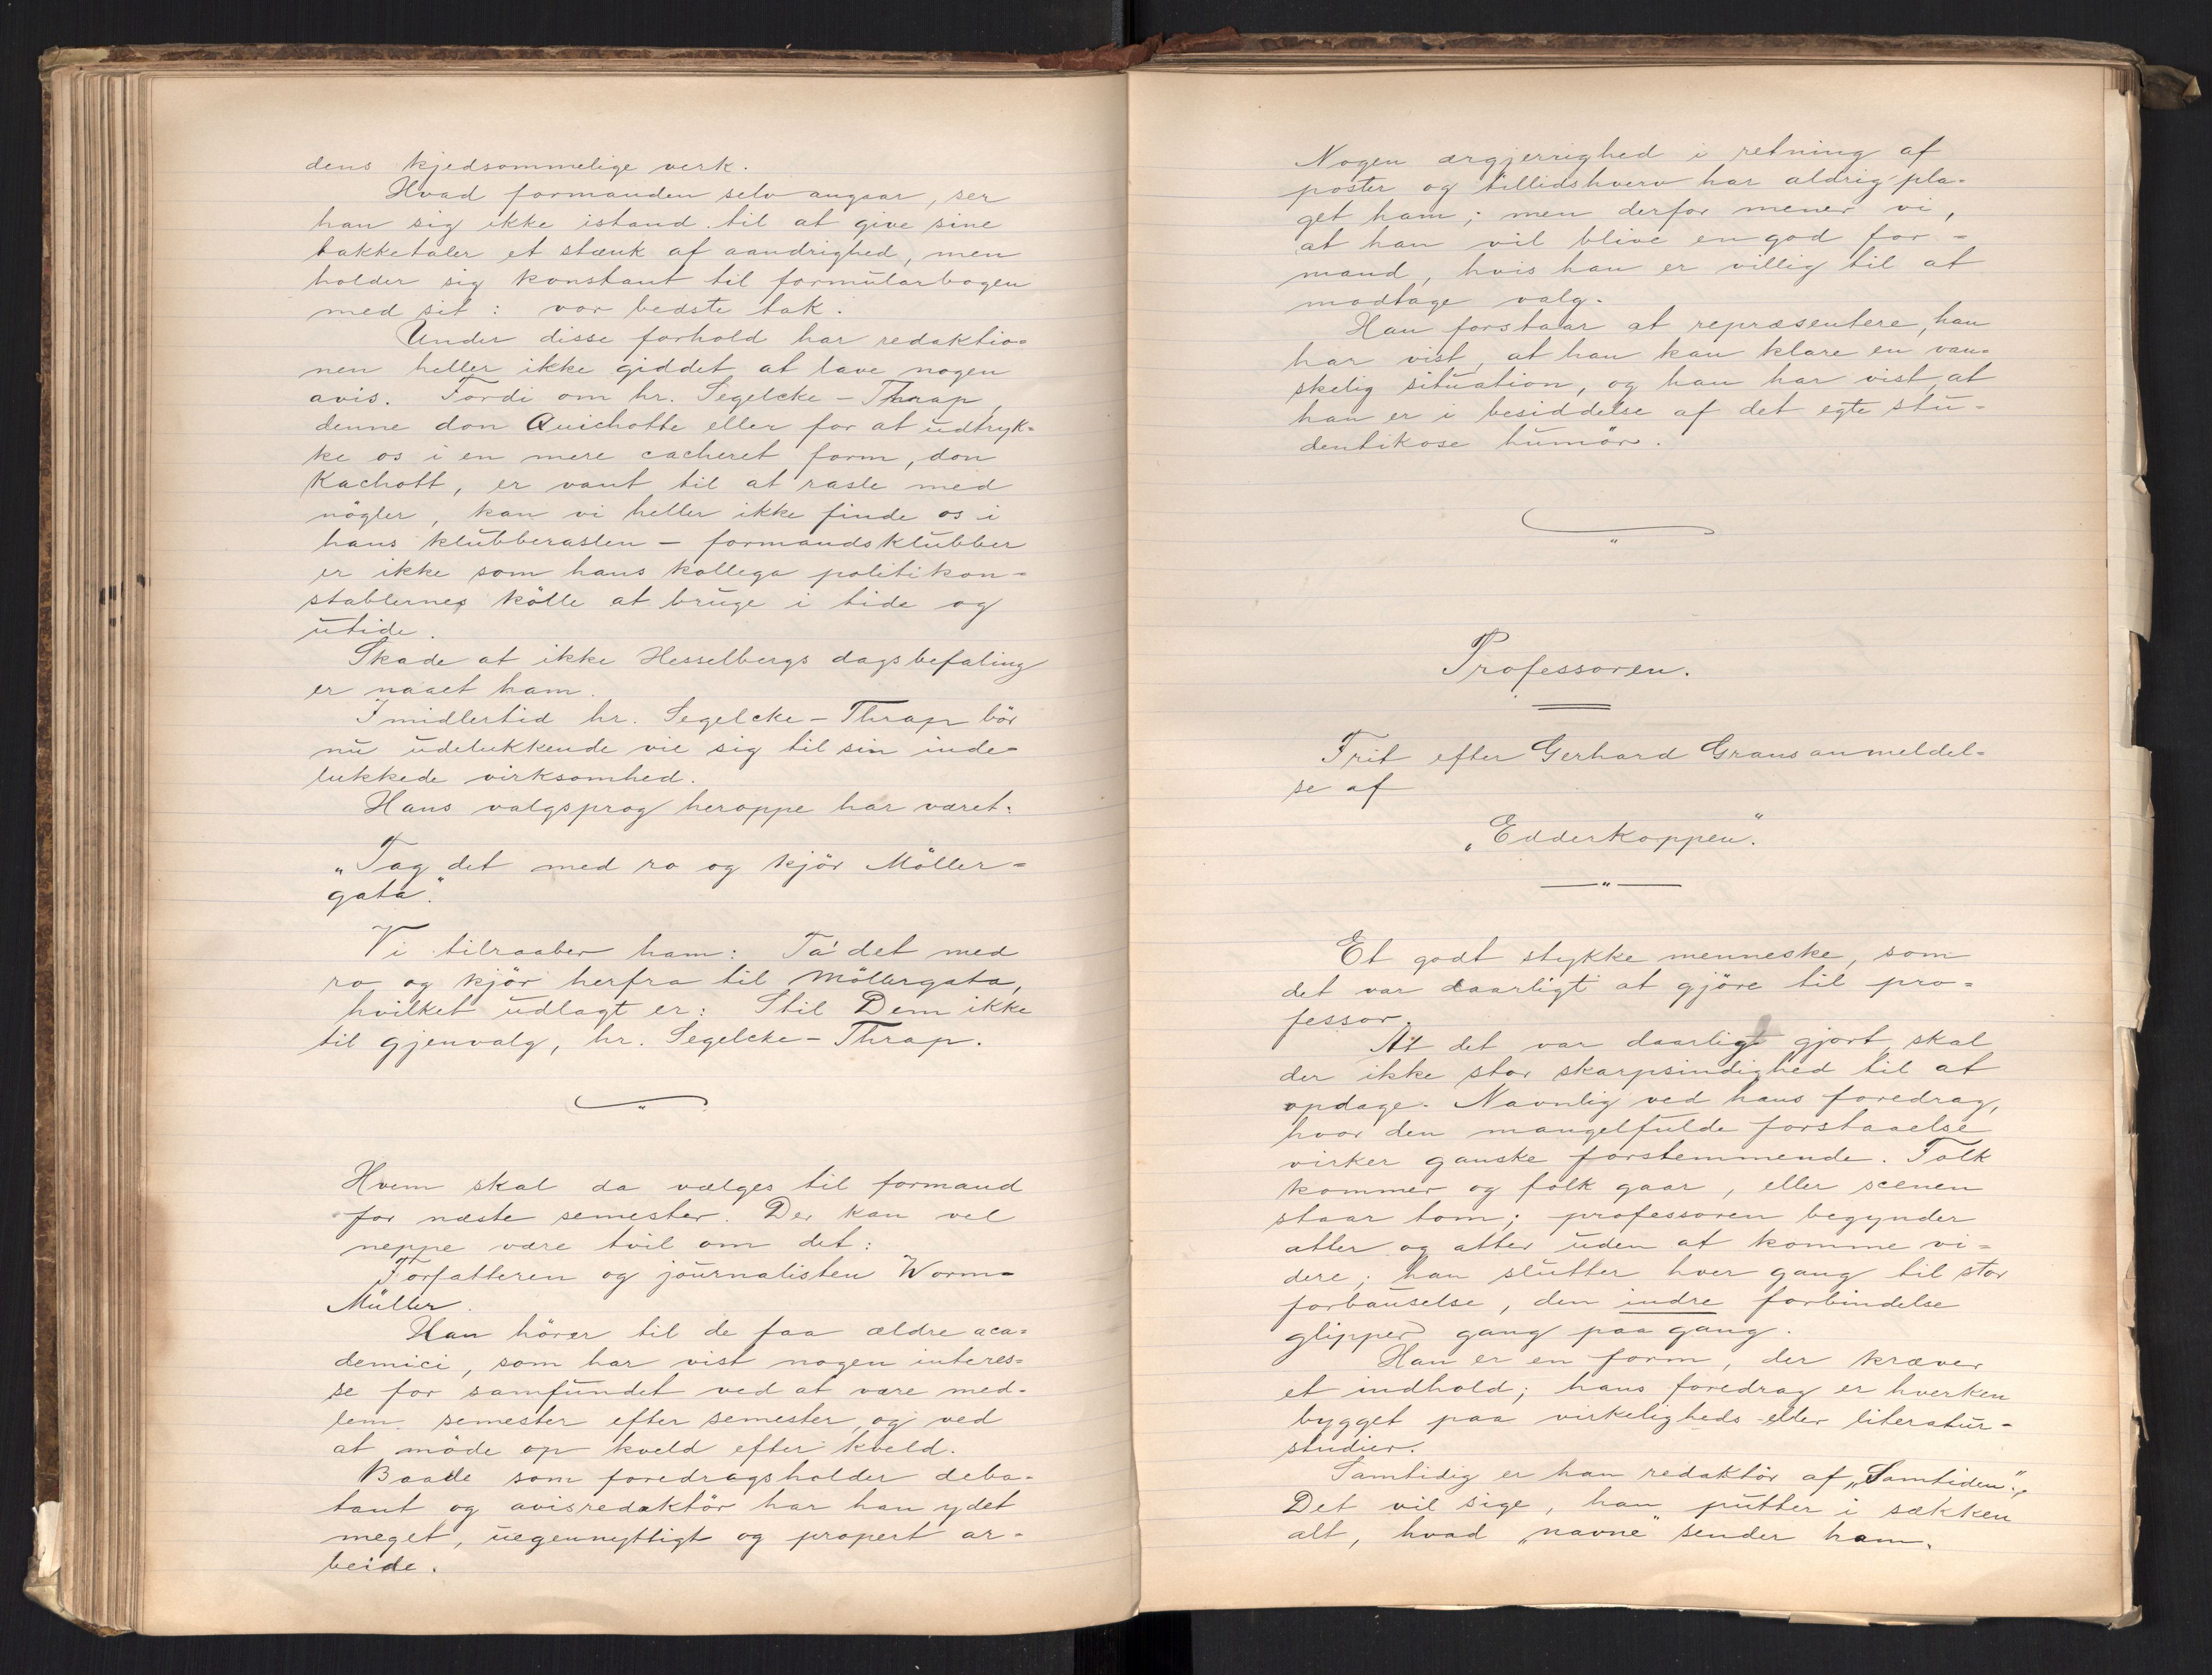 dens kjedsommelige verk.
Hvad formanden selv angaar, ser
han sig ikke istand til at give sine
takketaler et stænk af aandrighed, men
holder sig konstant til formularbogen
med sit: vor bedste tak.
Under disse forhold har redaktio=
nen heller ikke giddet at lave nogen
avis. Fordi om hr. Segelcke-Thrap,
denne don Quichotte eller for at udtryk=
ke os i en mere cacheret form, don
Kachott, er vant til at rasle med
nögler, kan vi heller ikke finde os i
hans klubberaslen - formandsklubber
er ikke som hans kollega politikon=
stablernes kölle at bruge i tide og
utide.
Skade at ikke Hesselbergs dagsbefaling
er naaet ham.
Imidlertid hr. Segelcke-Thrap bör
nu udelukkende vie sig til sin inde=
lukkede virksomhed.
Hans valgsprog heroppe har været:
„Tag det med ro og kjör Möller=
gata."
Vi tilraaber ham: Ta' det med
ro og kjör herfra til Möllergata,
hvilket udlagt er: Stil Dem ikke
til gjenvalg, hr. Segelcke-Thrap.
Hvem skal da vælges til formand
for næste semester. Der kan vel
neppe være tvil om det:
Forfatteren og journalisten Worm=
Müller.
Han hörer til de faa ældre aca=
demici, som har vist nogen interes=
se for samfundet ved at være med=
lem semester efter semester, og ved
at möde op kveld efter kveld.
Baade som foredragsholder deba=
tant og avisredaktör har han ydet
meget, uegennyttigt og propert ar=
beide.
Nogen ærgjerrighed i retning af
poster og tillidshverv har aldrig pla=
get ham; men derfor mener vi,
at han vil blive en god for=
mand, hvis han er villig til at
modtage valg.
Han forstaar at repræsentere, han
har vist, at han kan klare en van=
skelig situation, og han har vist, at
han er i besiddelse af det egte stu=
dentikose humör.
Professoren.
Frit efter Gerhard Grans anmeldel=
se af
„Edderkoppen".
Et godt stykke menneske, som
det var daarligt at gjöre til pro=
fessor.
At det var daarligt gjort, skal
der ikke stor skarpsindighed til at
opdage. Navnlig ved hans foredrag,
hvor den mangelfulde forstaaelse
virker ganske forstemmende. Folk
kommer og folk gaar, eller scenen
staar tom; professoren begynder
atter og atter uden at komme vi=
dere; han slutter hver gang til stor
forbauselse, den indre forbindelse
glipper gang paa gang.
Han er en form, der kræver
et indhold; hans foredrag er hverken
bygget paa virkeligheds- eller literatur=
studier.
Samtidig er han redaktör af „Samtiden".
Det vil sige, han putter i sækken
alt, hvad „navne" sender ham.